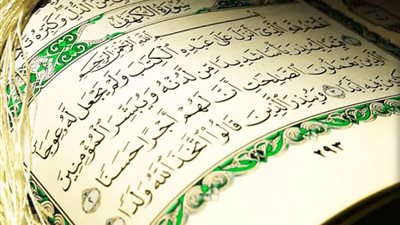 ٱلذُّلِّ وَكَبِّرْهُ
سُورَةُ الكَهْفِ
بِسْمِ ٱللَّهِ ٱلرَّحْمَٰنِ ٱلرَّحِيمِ
ٱلْحَمْدُ لِلَّهِ ٱلَّذِىٓ أَنزَلَ عَلَىٰ عَبْدِهِ ٱلْكِتَٰبَ وَلَمْ يَجْعَل لَّهُۥ عِوَجَا
قَيِّمًا لِّيُنذِرَ بَأْسًا شَدِيدًا مِّن لَّدُنْهُ وَيُبَشِّرَ ٱلْمُؤْمِنِينَ
ٱلَّذِينَ يَعْمَلُونَ ٱلصَّٰلِحَٰتِ أَنَّ لَهُمْ أَجْرًا حَسَنًا ٢
وَيُنذِرَ ٱلَّذِينَ قَالُوا۟ ٱتَّخَذَ ٱللَّهُ وَلَدًا
٢٩٣